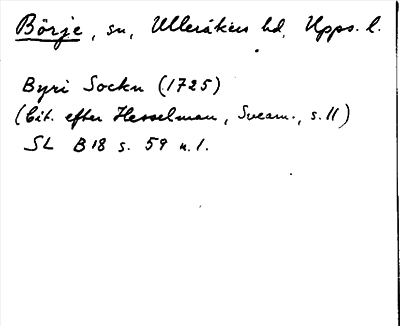 Börje, sn, Ulleråkers hd, Upps. l.
Byri Sockn (1725)
(Cit. efter Hesselman, Sveam., s. 11)
SL B18 s. 59 n. 1.